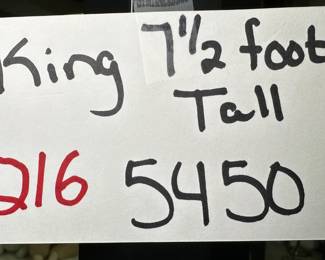 King 7½ foot
Tall
216 5450